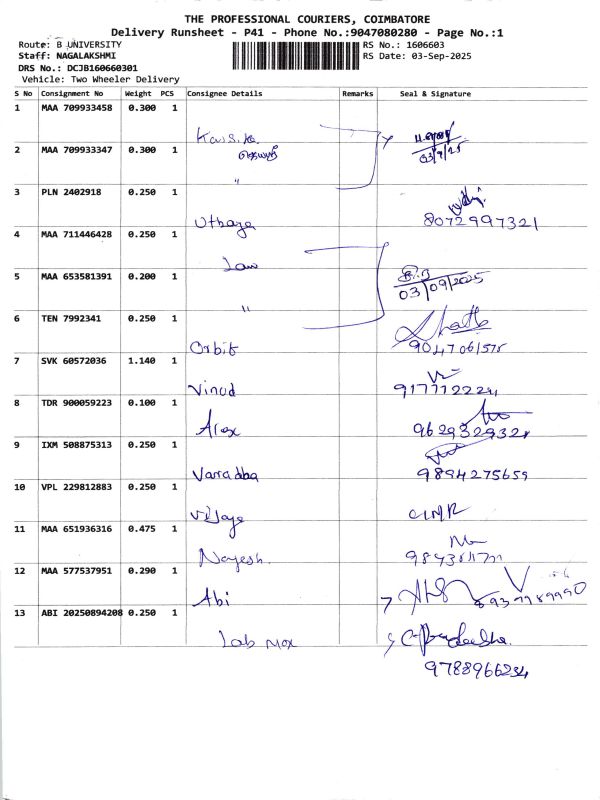 THE PROFESSIONAL COURIERS, COIMBATORE
Delivery Runsheet - P41 - Phone No.:9047080280 - Page No.:1
Route: B UNIVERSITY
RS No.: 1606603
Staff: NAGALAKSHMI
RS Date: 03-Sep-2025
DRS No.: DCJB160660301
Vehicle: Two Wheeler Delivery
S No Consignment No Weight PCS Consignee Details Remarks Seal & Signature
1 MAA 709933458 0.300 1
03/9/25
2 MAA 709933347 0.300 1
"
3 PLN 2402918 0.250 1 Uthaya 8072997321
4 MAA 711446428 0.250 1 Law
5 MAA 653581391 0.200 1 " 03/09/2025
6 TEN 7992341 0.250 1 Orbit
7 SVK 60572036 1.140 1 Vinod
8 TDR 900059223 0.100 1 Alex 9629329321
9 IXM 508875313 0.250 1 Varadha 9894275659
10 VPL 229812883 0.250 1 Vijaya
11 MAA 651936316 0.475 1 Nagesh.
12 MAA 577537951 0.290 1 Abi
13 ABI 20250894208 0.250 1 Lab
9788966234